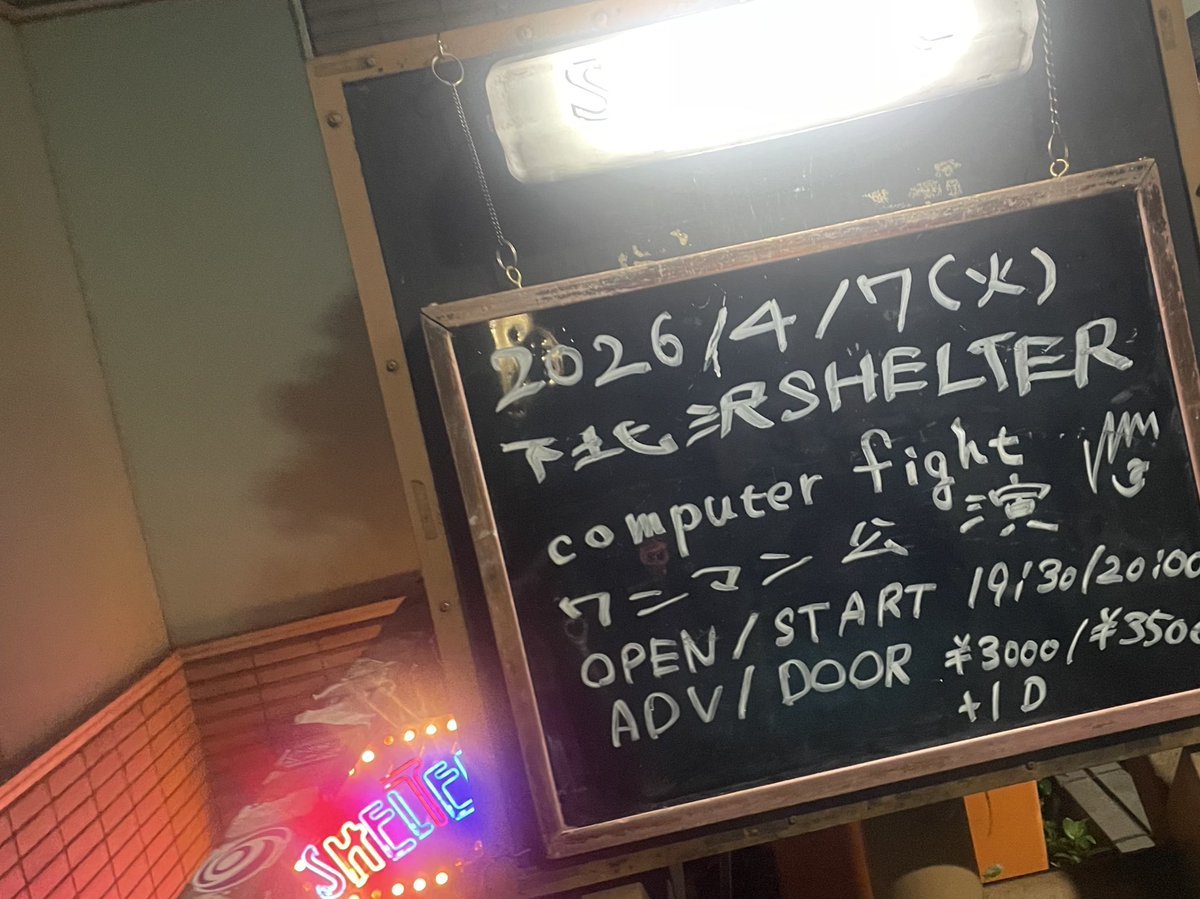 2026/4/7(火)
下北沢SHELTER
computer fight
ワンマン公演
OPEN/START 19:30/20:00
ADV/DOOR ¥3000/¥350
+1D
SHELTE